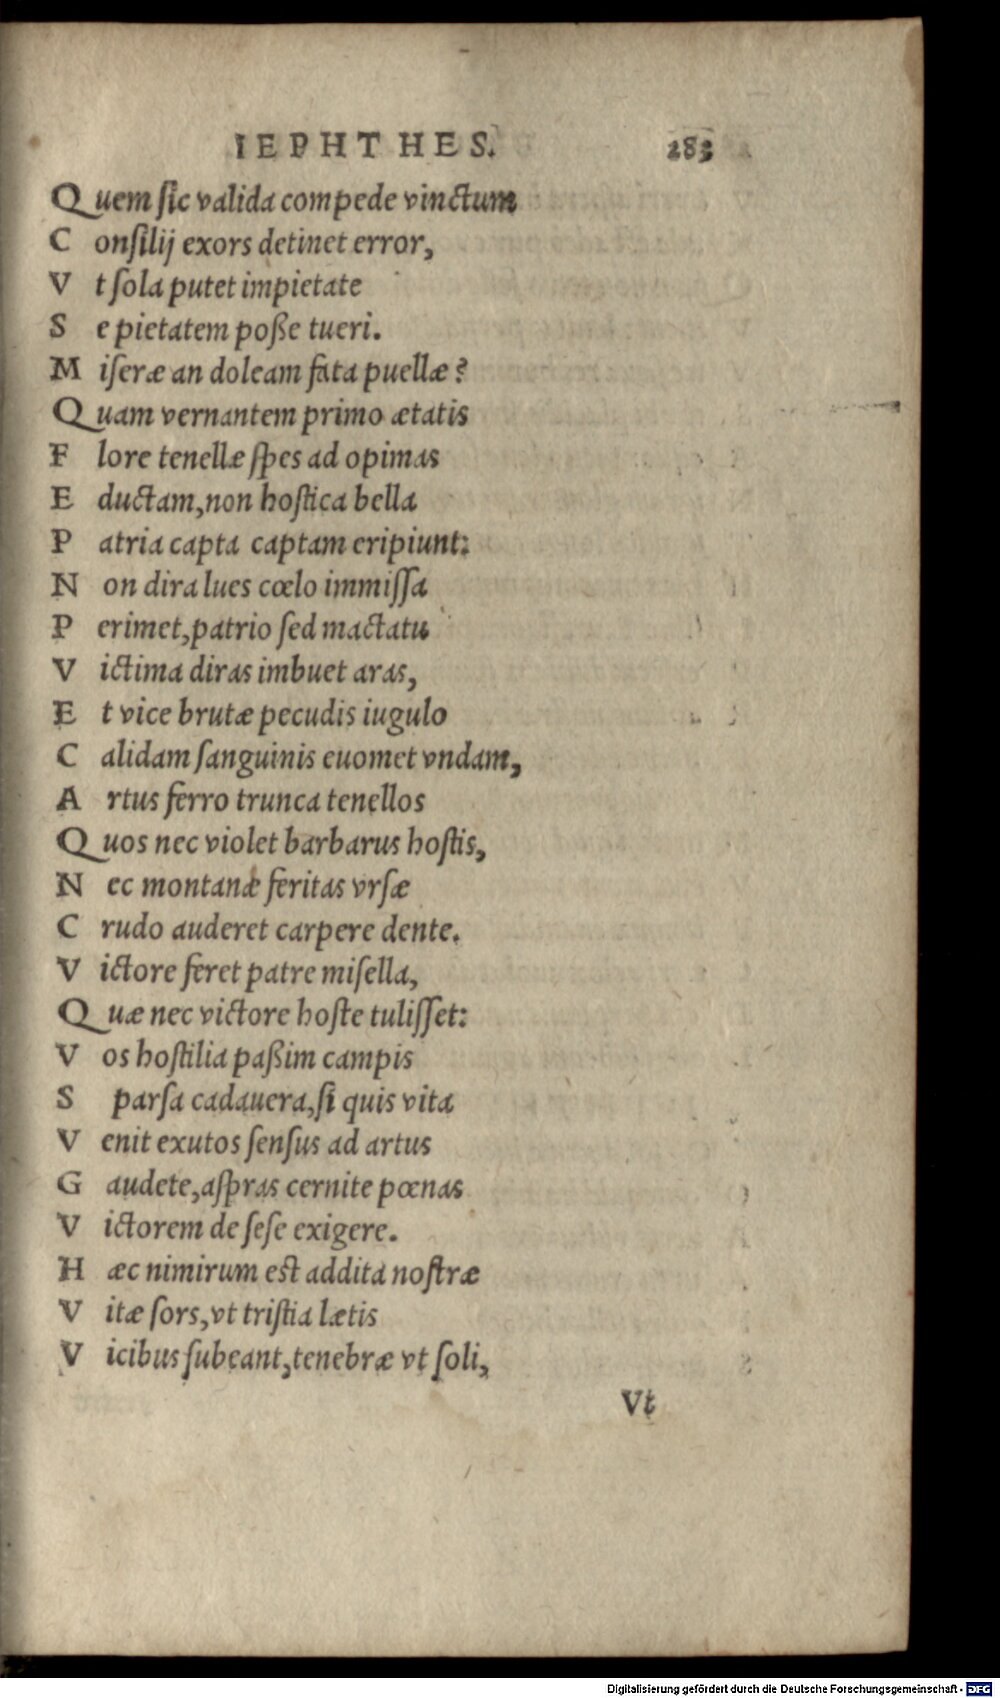 IEPHTHES. 283
Quem ſic valida compede vinctum
Conſilij exors detinet error,
Vt ſola putet impietate
Se pietatem poße tueri.
Miſeræ an doleam fata puellæ?
Quam vernantem primo ætatis
Flore tenellæ ſpes ad opimas
Eductam,non hoſtica bella
Patria capta captam eripiunt:
Non dira lues cœlo immiſſa
Perimet,patrio ſed mactatu
Victima diras imbuet aras,
Et vice brutæ pecudis iugulo
Calidam ſanguinis euomet vndam,
Artus ferro trunca tenellos
Quos nec violet barbarus hoſtis,
Nec montanæ feritas vrſæ
Crudo auderet carpere dente.
Victore feret patre miſella,
Quæ nec victore hoſte tuliſſet:
Vos hoſtilia paßim campis
Sparſa cadauera,ſi quis vita
Venit exutos ſenſus ad artus
Gaudete,aſpras cernite pœnas
Victorem de ſeſe exigere.
Hæc nimirum eſt addita noſtræ
Vitæ ſors,vt triſtia lætis
Vicibus ſubeant,tenebræ vt ſoli,
Vt
Digitalisierung gefördert durch die Deutsche Forschungsgemeinschaft - DFG